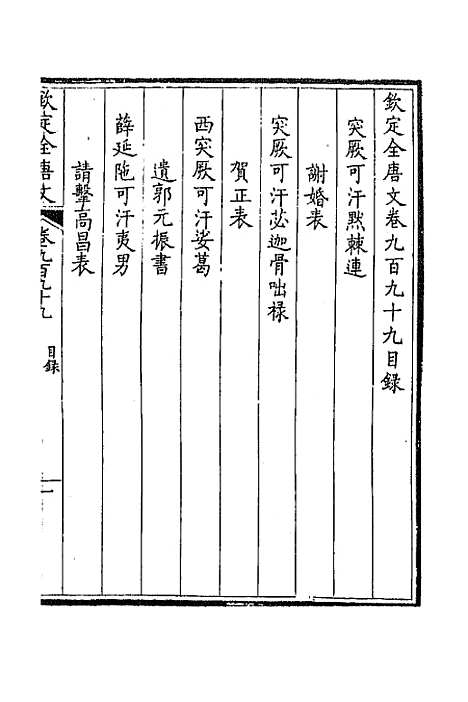 欽定全唐文卷九百九十九目錄
突厥可汗黙棘連
謝婚表
突厥可汗苾迦骨咄祿
賀正表
西突厥可汗娑葛
遺郭元振書
薛延陁可汗夷男
請擊高昌表
欽定全唐文 卷九百九十九 目錄 一